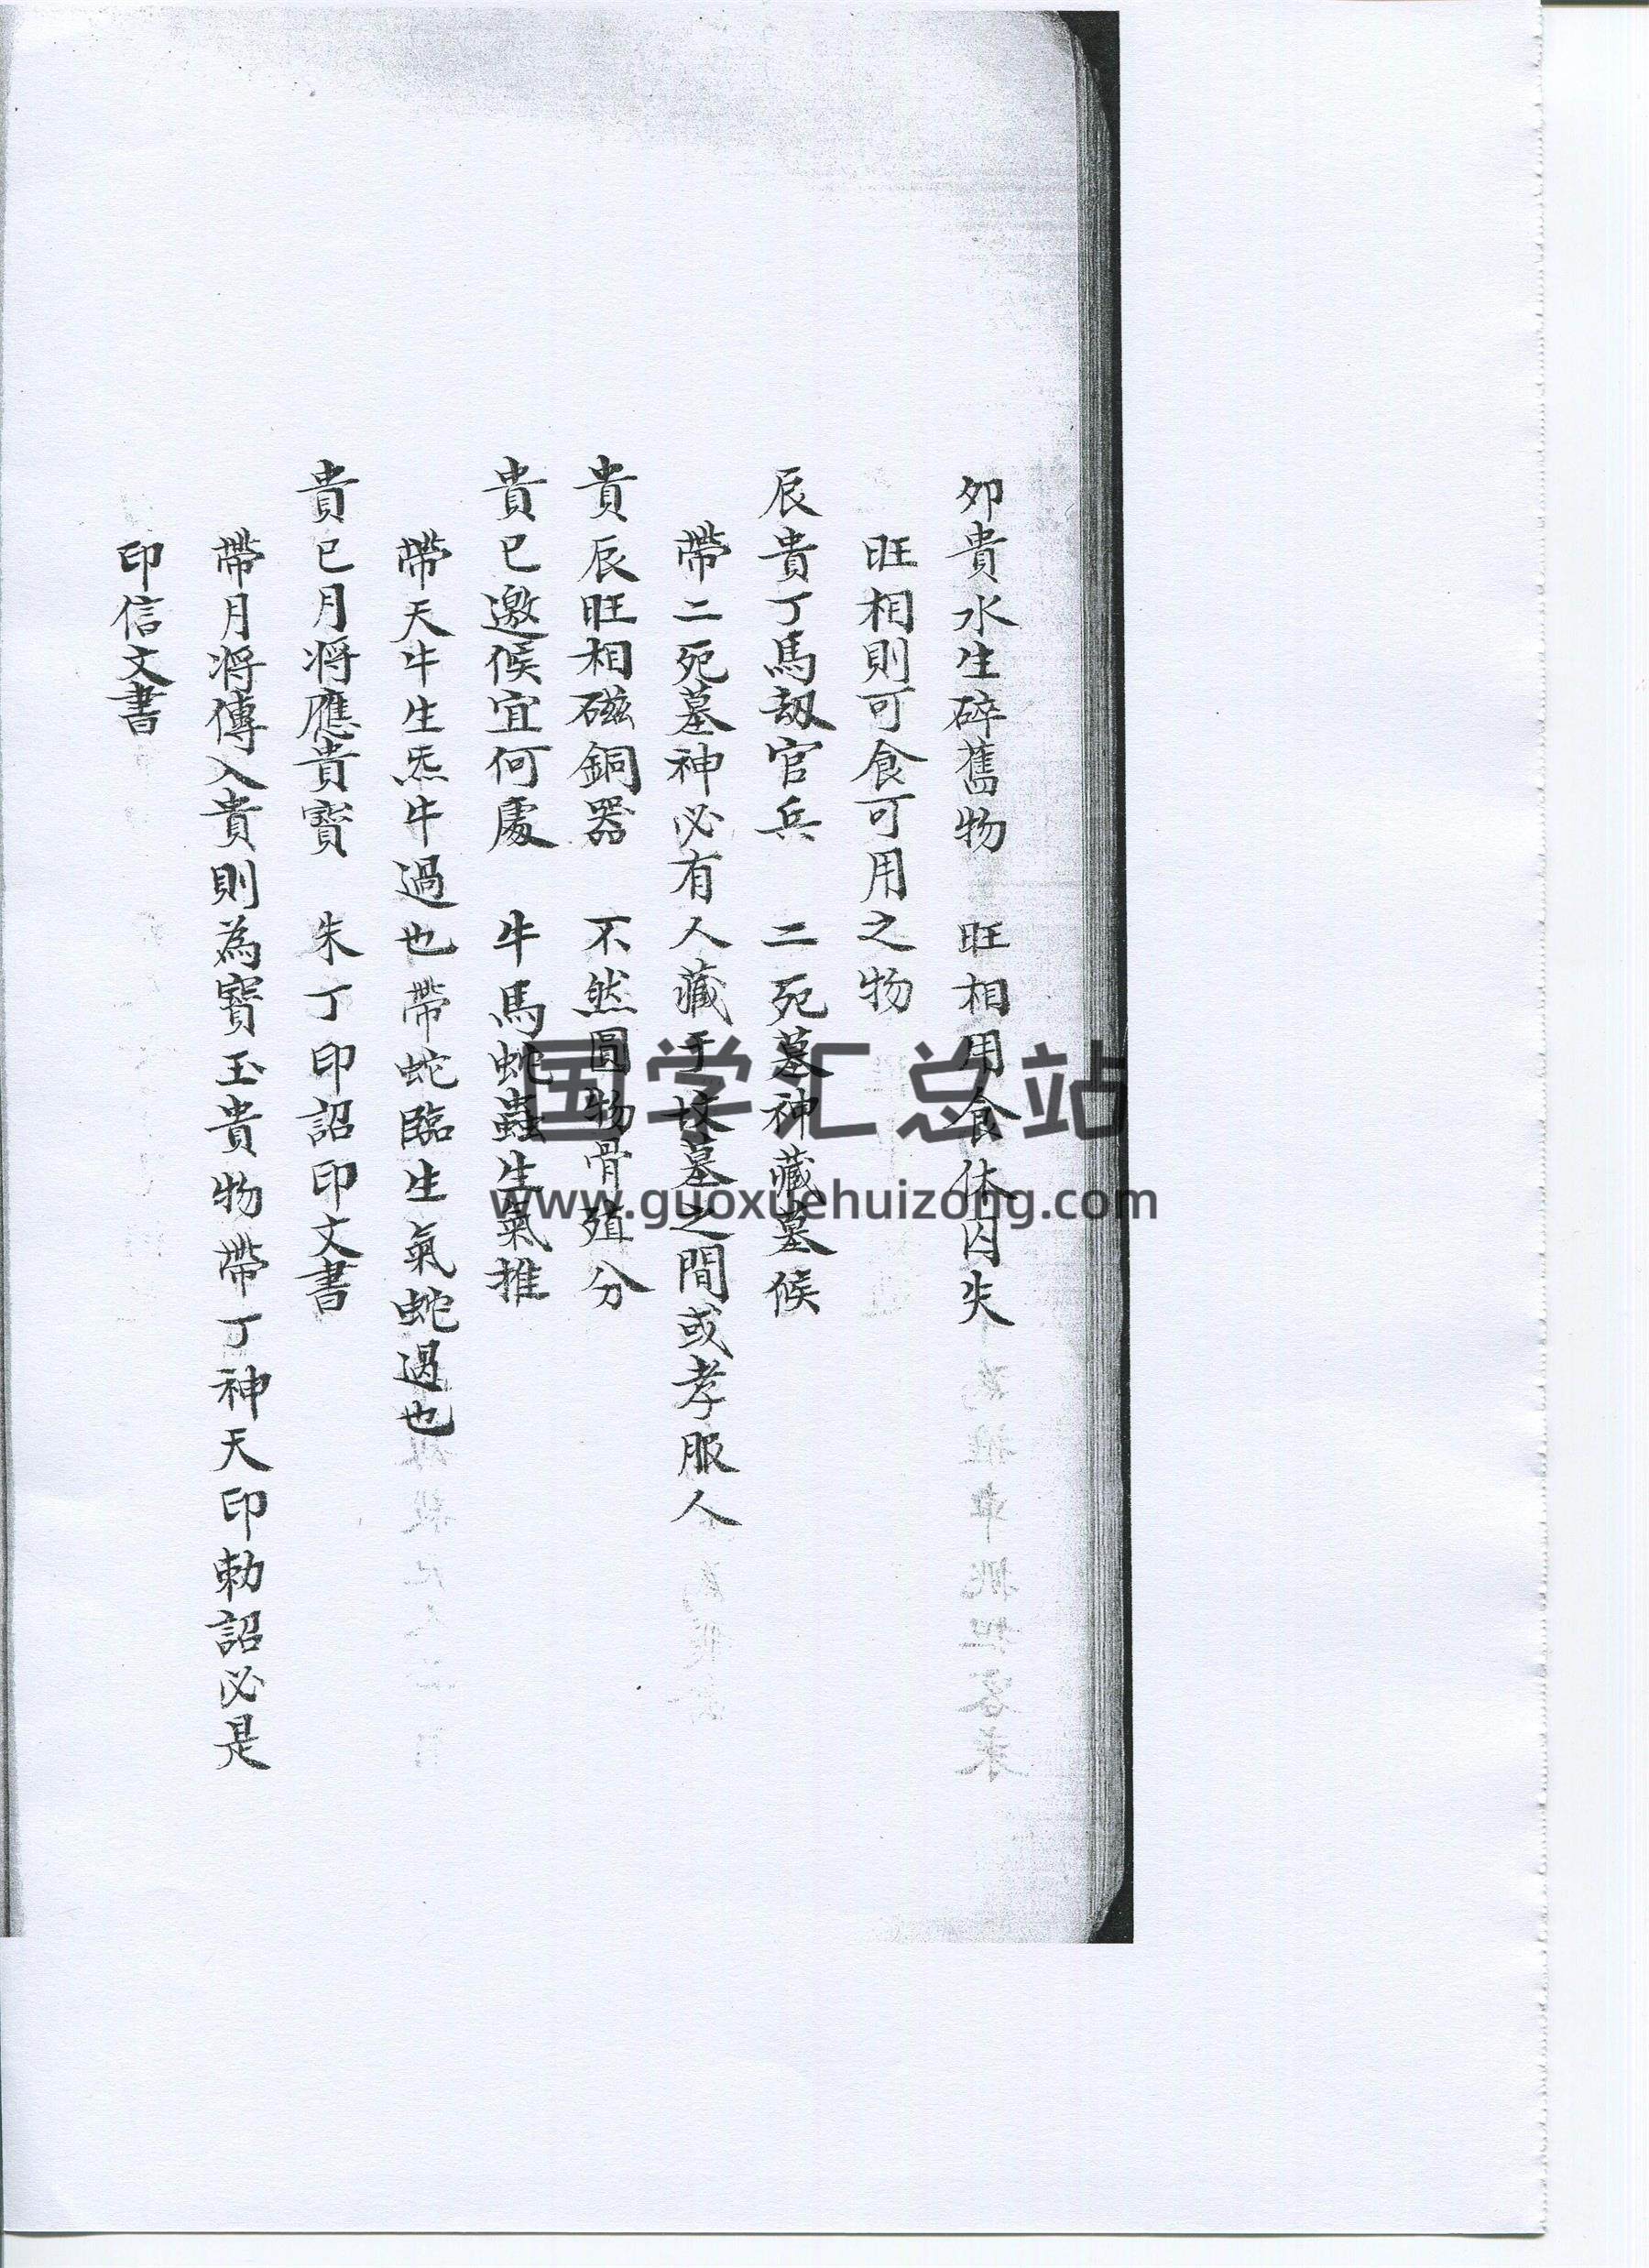 卯貴水生碎舊物　旺相用食休囚失
旺相則可食可用之物
辰貴丁馬刼官兵　二死墓神藏墓候
帶二死墓神必有人藏于坟墓之間或孝服人
貴辰旺相磁銅器　不然圓物骨殖分
貴巳邀候宜何處　牛馬蛇蟲生氣推
帶天牛生炁牛過也帶蛇臨生氣蛇過也
貴巳月将應貴寳　朱丁印詔印文書
帶月将傳入貴則為寳玉貴物帶丁神天印勅詔必是
印信文書
国学汇总站
www.guoxuehuizong.com